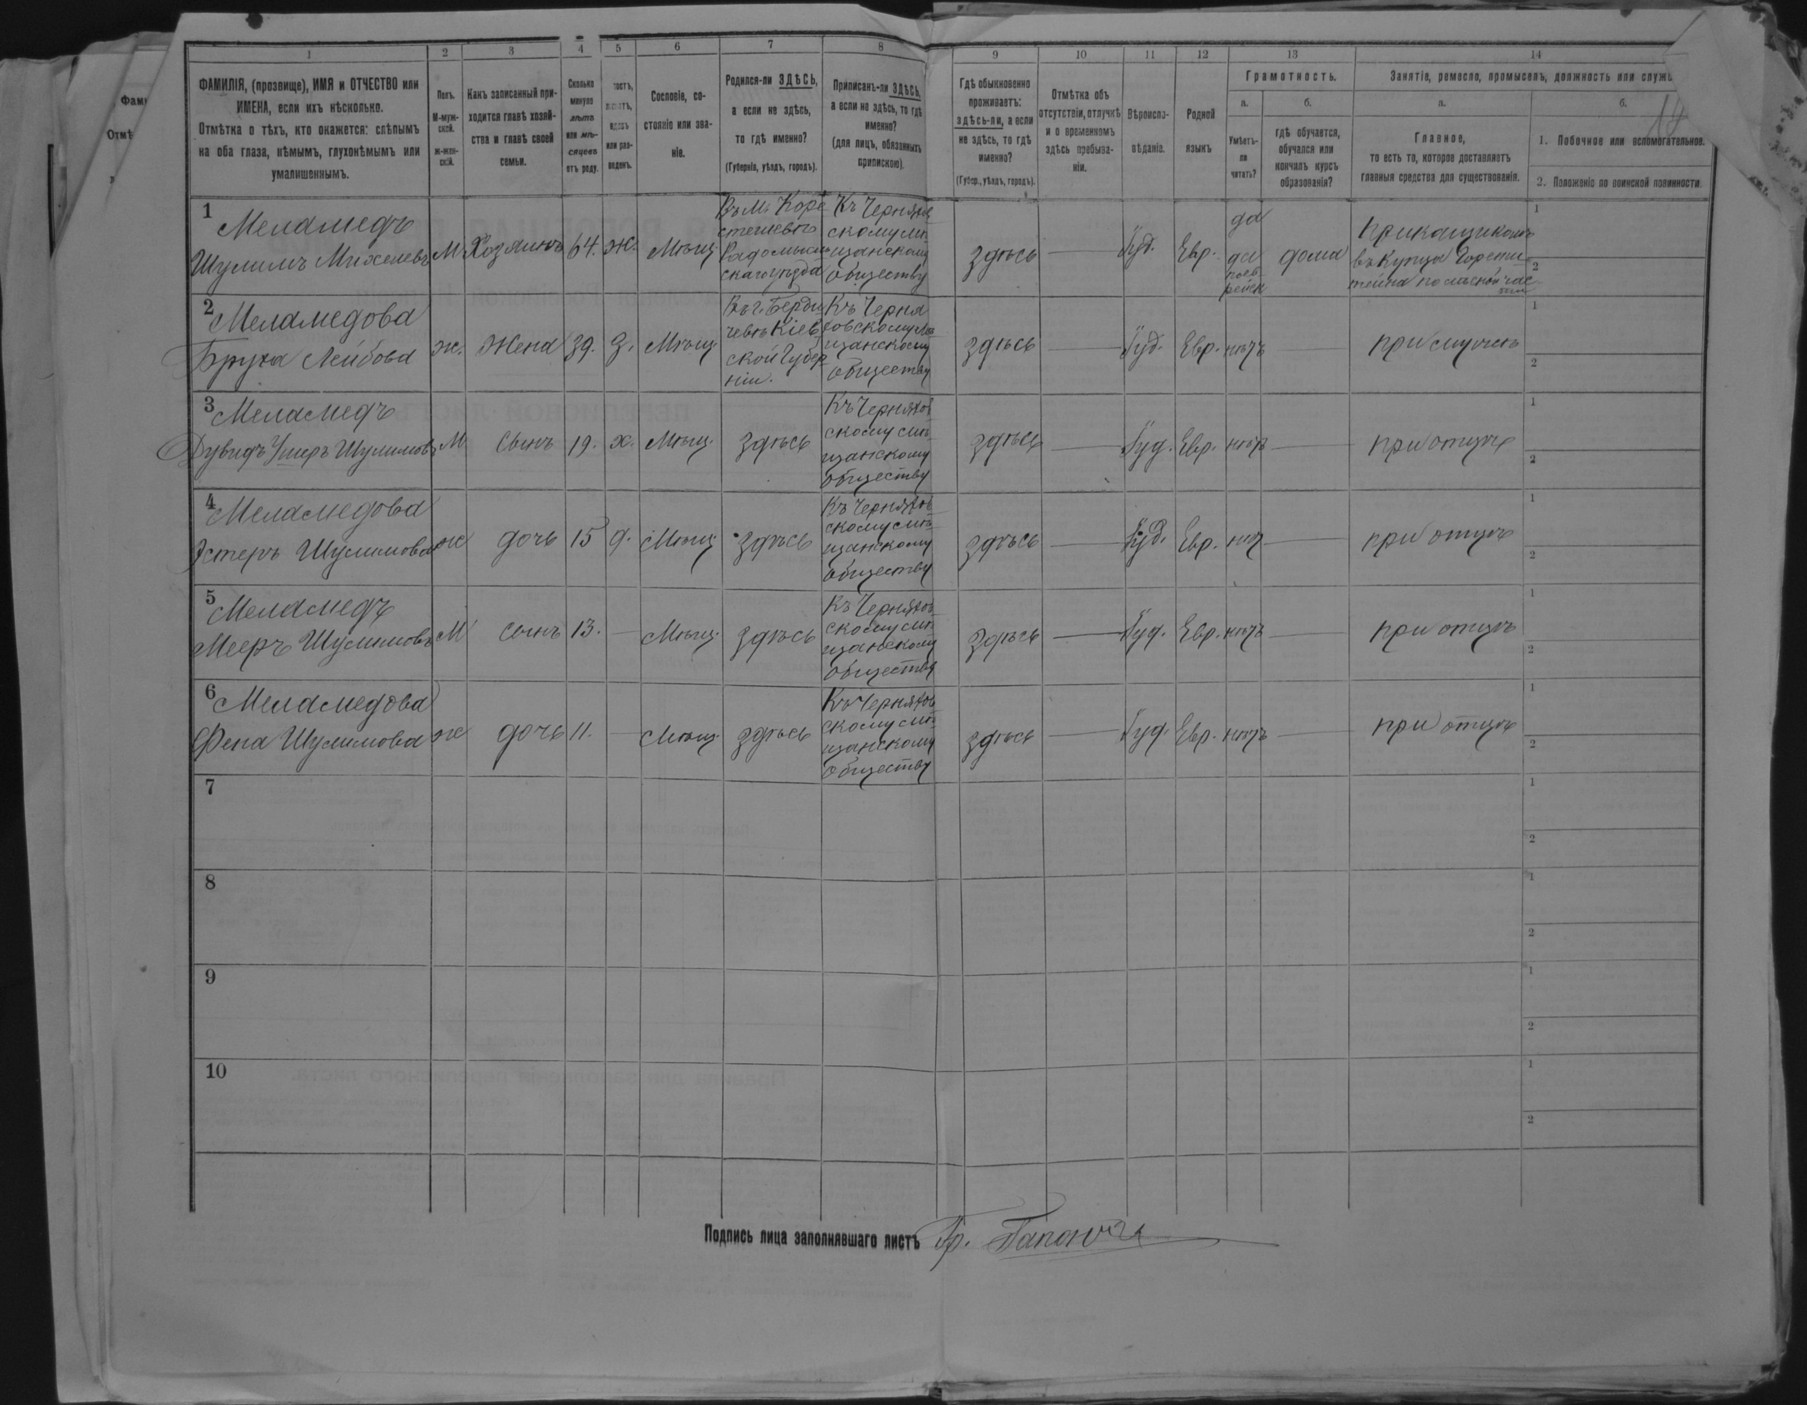 1 2 3 4 5 6 7 8 9 10 11 12 13 14
ФАМИЛІЯ, (прозвище), ИМЯ и ОТЧЕСТВО или
ИМЕНА, если ихъ нѣсколько.
Отмѣтка о тѣхъ, кто окажется: слѣпымъ
на оба глаза, нѣмымъ, глухонѣмымъ или
умалишеннымъ.
Полъ.
М-муж-
ской.
ж-жен-
скій.
Какъ записанный при-
ходится главѣ хозяй-
ства и главѣ своей
семьи.
Сколько
минуло
лѣтъ
или мѣ-
сяцевъ
отъ роду.
или раз-
веденъ.
Сословіе, со-
стояніе или зва-
ніе.
Родился-ли ЗДѢСЬ,
а если не здѣсь,
то гдѣ именно?
(Губернія, уѣздъ, городъ).
Приписанъ-ли ЗДѢСЬ,
а если не здѣсь, то гдѣ
именно?
(для лицъ, обязанныхъ
припискою).
Гдѣ обыкновенно
проживаетъ:
здѣсь-ли, а если
не здѣсь, то гдѣ
именно?
(Губер., уѣздъ, городъ).
Отмѣтка объ
отсутствіи, отлучкѣ
и о временномъ
здѣсь пребыва-
ніи.
Вѣроиспо-
вѣданіе.
Родной
языкъ
Грамотность.
а.
Умѣетъ-
ли
читать?
б.
гдѣ обучается,
обучался или
кончилъ курсъ
образованія?
Занятіе, ремесло, промыселъ, должность или служ
а.
Главное,
то есть то, которое доставляетъ
главныя средства для существованія.
б.
1. Побочное или вспомогательное.
2. Положеніе по воинской повинности
1 Меламедъ
Шулимъ Михелевъ М Хозяинъ 64. ж. Мѣщ.
Въ м. Коро
стешевѣ
Радомысль
скаго уѣзда
Къ Чернях
скому мѣ
щанскому
обществу
здѣсь — Іуд. Евр.
да
да
по ев
рейск
дома
Прикащикомъ
въ Купца Горен
штейна по лесной час
ти
1
2
2 Меламедова
Бруха Лейбова ж. жена 39. З. Мѣщ.
Въ г. Берди
чевѣ Кіев
ской Губер
ніи.
Къ Черня
ховскому мѣ
щанскому
обществу
здѣсь — Іуд. Евр. нѣтъ — при мужѣ
1
2
3 Меламедъ
Дувидъ Ушеръ Шулимовъ М сынъ 19. х. Мѣщ. здѣсь
Къ Черняхов
скому мѣ
щанскому
обществу
здѣсь — Іуд. Евр. нѣтъ — при отцѣ
1
2
4 Меламедова
Эстеръ Шулимова ж дочь 15 д. Мѣщ. здѣсь
Къ Черняхов
скому мѣ
щанскому
обществу
здѣсь — Іуд. Евр. нѣт — при отцѣ
1
2
5 Меламедъ
Мееръ Шулимовъ М сынъ 13. — Мѣщ. здѣсь
Къ Черняхов
скому мѣ
щанскому
обществу
здѣсь — Іуд. Евр. нѣтъ — при отцѣ
1
2
6 Меламедова
Фена Шулимова ж дочь 11. — Мѣщ. здѣсь
Къ Черняхов
скому мѣ
щанскому
обществу
здѣсь — Іуд. Евр. нѣтъ — при отцѣ
1
2
7
1
2
8
1
2
9
1
2
10
1
2
Подпись лица заполнявшаго листъ Гр.